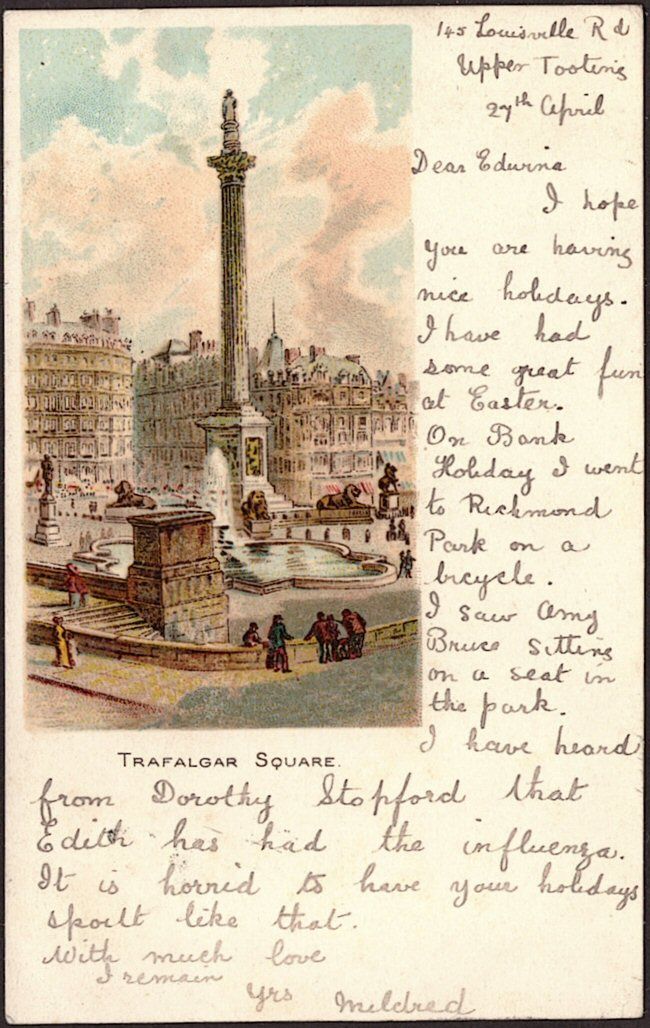 145 Louisville Rd
Upper Tooting
27th April
Dear Edwina
I hope
you are having
nice holidays.
I have had
some great fun
at Easter.
On Bank
Holiday I went
to Richmond
Park on a
bicycle.
I saw Amy
Bruce sitting
on a seat in
the park.
I have heard
TRAFALGAR SQUARE.
from Dorothy Stopford that
Edith has had the influenza.
It is horrid to have your holidays
spoilt like that.
With much love
I remain
Yrs
Mildred